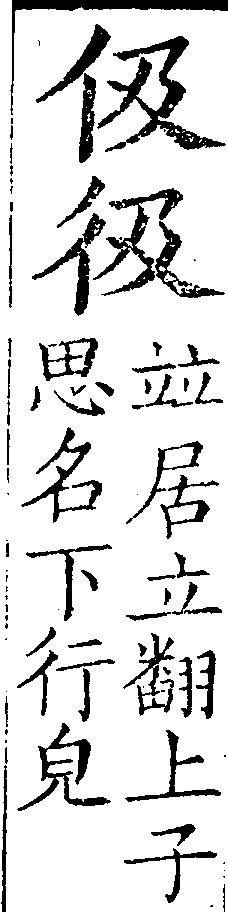 伋彶
竝居立翻上子
思名下行皃